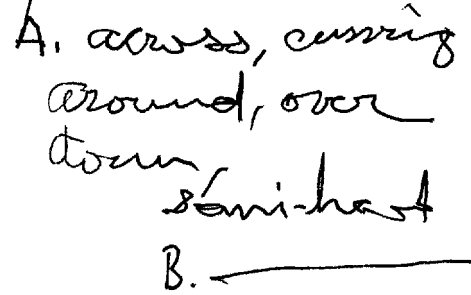 A. across, cussing
around, over
down,
semi-hart
B.